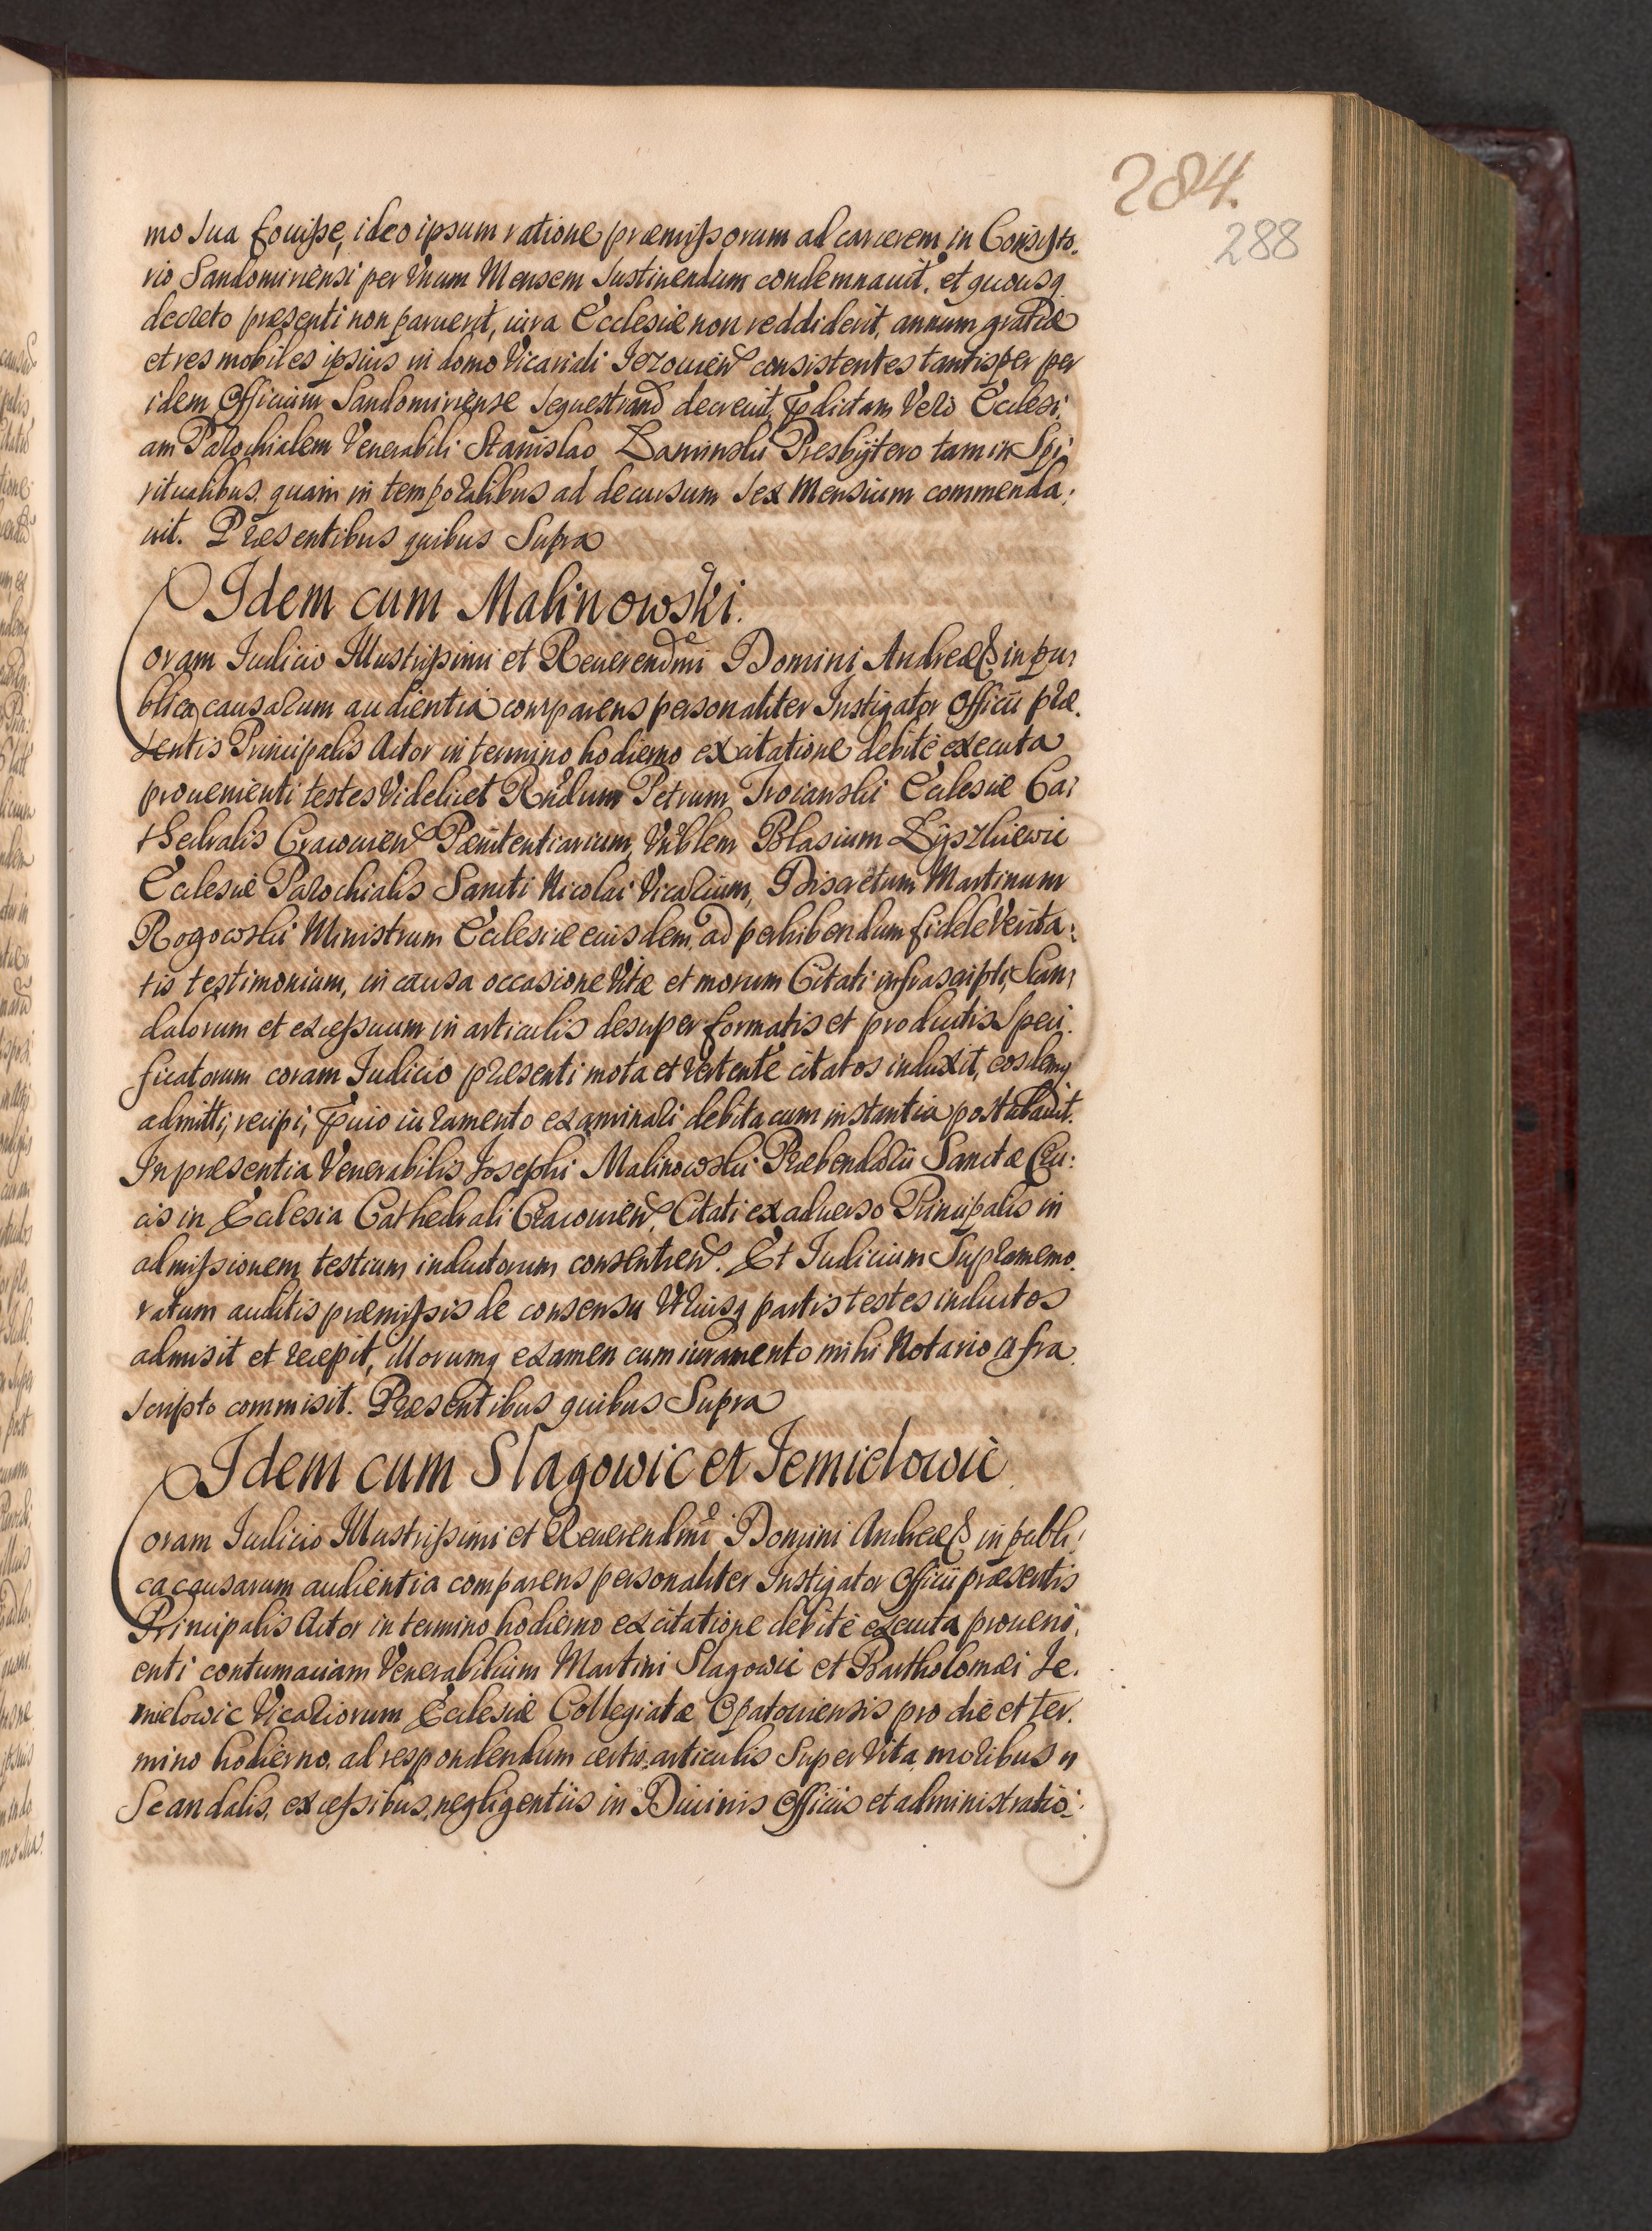 284.
288
mo sua fouisse, ideo ipsum ratione præmissorum ad carcerem in Consisto.
rio Sandomiriensi per Vnum Mensem sustinendum condemnauit, et quousq
decreto præsenti non paruerit, iura Ecclesiæ non reddiderit, annum gratiæ
et res mobiles ipsius in domo Vicariali consistentes tantisper per
idem Officium Sandomiriense sequestrand decreuit, Pdictam Vero Eccles:
am Parochialem Venerabili Stanislao Presbytero tam in Spi:
ritualibus, quam in temporalibus ad decursum sex Mensium commenda:
uit. Præsentibus quibus Supra
Idem cum Malinowski.
Coram Iudicio Illustrissimi et Reuerendmi Domini Andreæ & in pu:
blica causarum audientia comparens personaliter Instigator Officii præ.
sentis Principalis Actor in termino hodierno ex citatione debitè executa
prouenienti testes Videlicet Rndum Petrum Troianski Ecclesiæ Ca:
thedralis Cracouien Pænitentiarium, Vnblem Blasium Łyszkiewic
Ecclesiæ Parochialis Sancti Nicolai Vicarium, Discretum Martinum
Rogowski Ministrum Ecclesiæ eiusdem, ad perhibendum fidele Verita:
tis testimonium, in causa occasione Vitæ et morum Citati infrascripti, Scan:
dalorum et excessuum in articulis desuper formatis et productis Speci:
ficatorum coram Iudicio præsenti mota et Vertente citatos induxit, eosdemq
admitti, recipi, Puio iuramento examinari debita cum instantia postulauit.
In præsentia Venerabilis Josephi Malinowski Præbendarii Sanctæ Cru:
cis in Ecclesia Cathedrali Cracouien, Citati ex aduerso Principalis in
admissionem testium inductorum consentien. Et Iudicium Supramemo.
ratum auditis præmissis de consensu Vtriusq partis testes inductos
admisit et recepit, illorumq examen cum iuramento mihi Notario infra
scripto commisit. Præsentibus quibus Supra
Idem cum Slagowic et Jemielowic
Coram Iudicio Illustrissimi et Reuerendmi Domini Andreæ & in publi:
ca causarum audientia comparens personaliter Instigator Officii præsentis
Principalis Actor in termino hodierno ex citatione debitè executa proueni:
enti contumaciam Venerabilium Martini Slagowic et Bartholomæi Je.
mielowic Vicariorum Ecclesiæ Collegiatæ Opatouiensis pro die et ter.
mino hodierno, ad respondendum certis articulis Super Vita, moribus
Scandalis, excessibus, negligentiis in Diuinis Officiis et administratio: